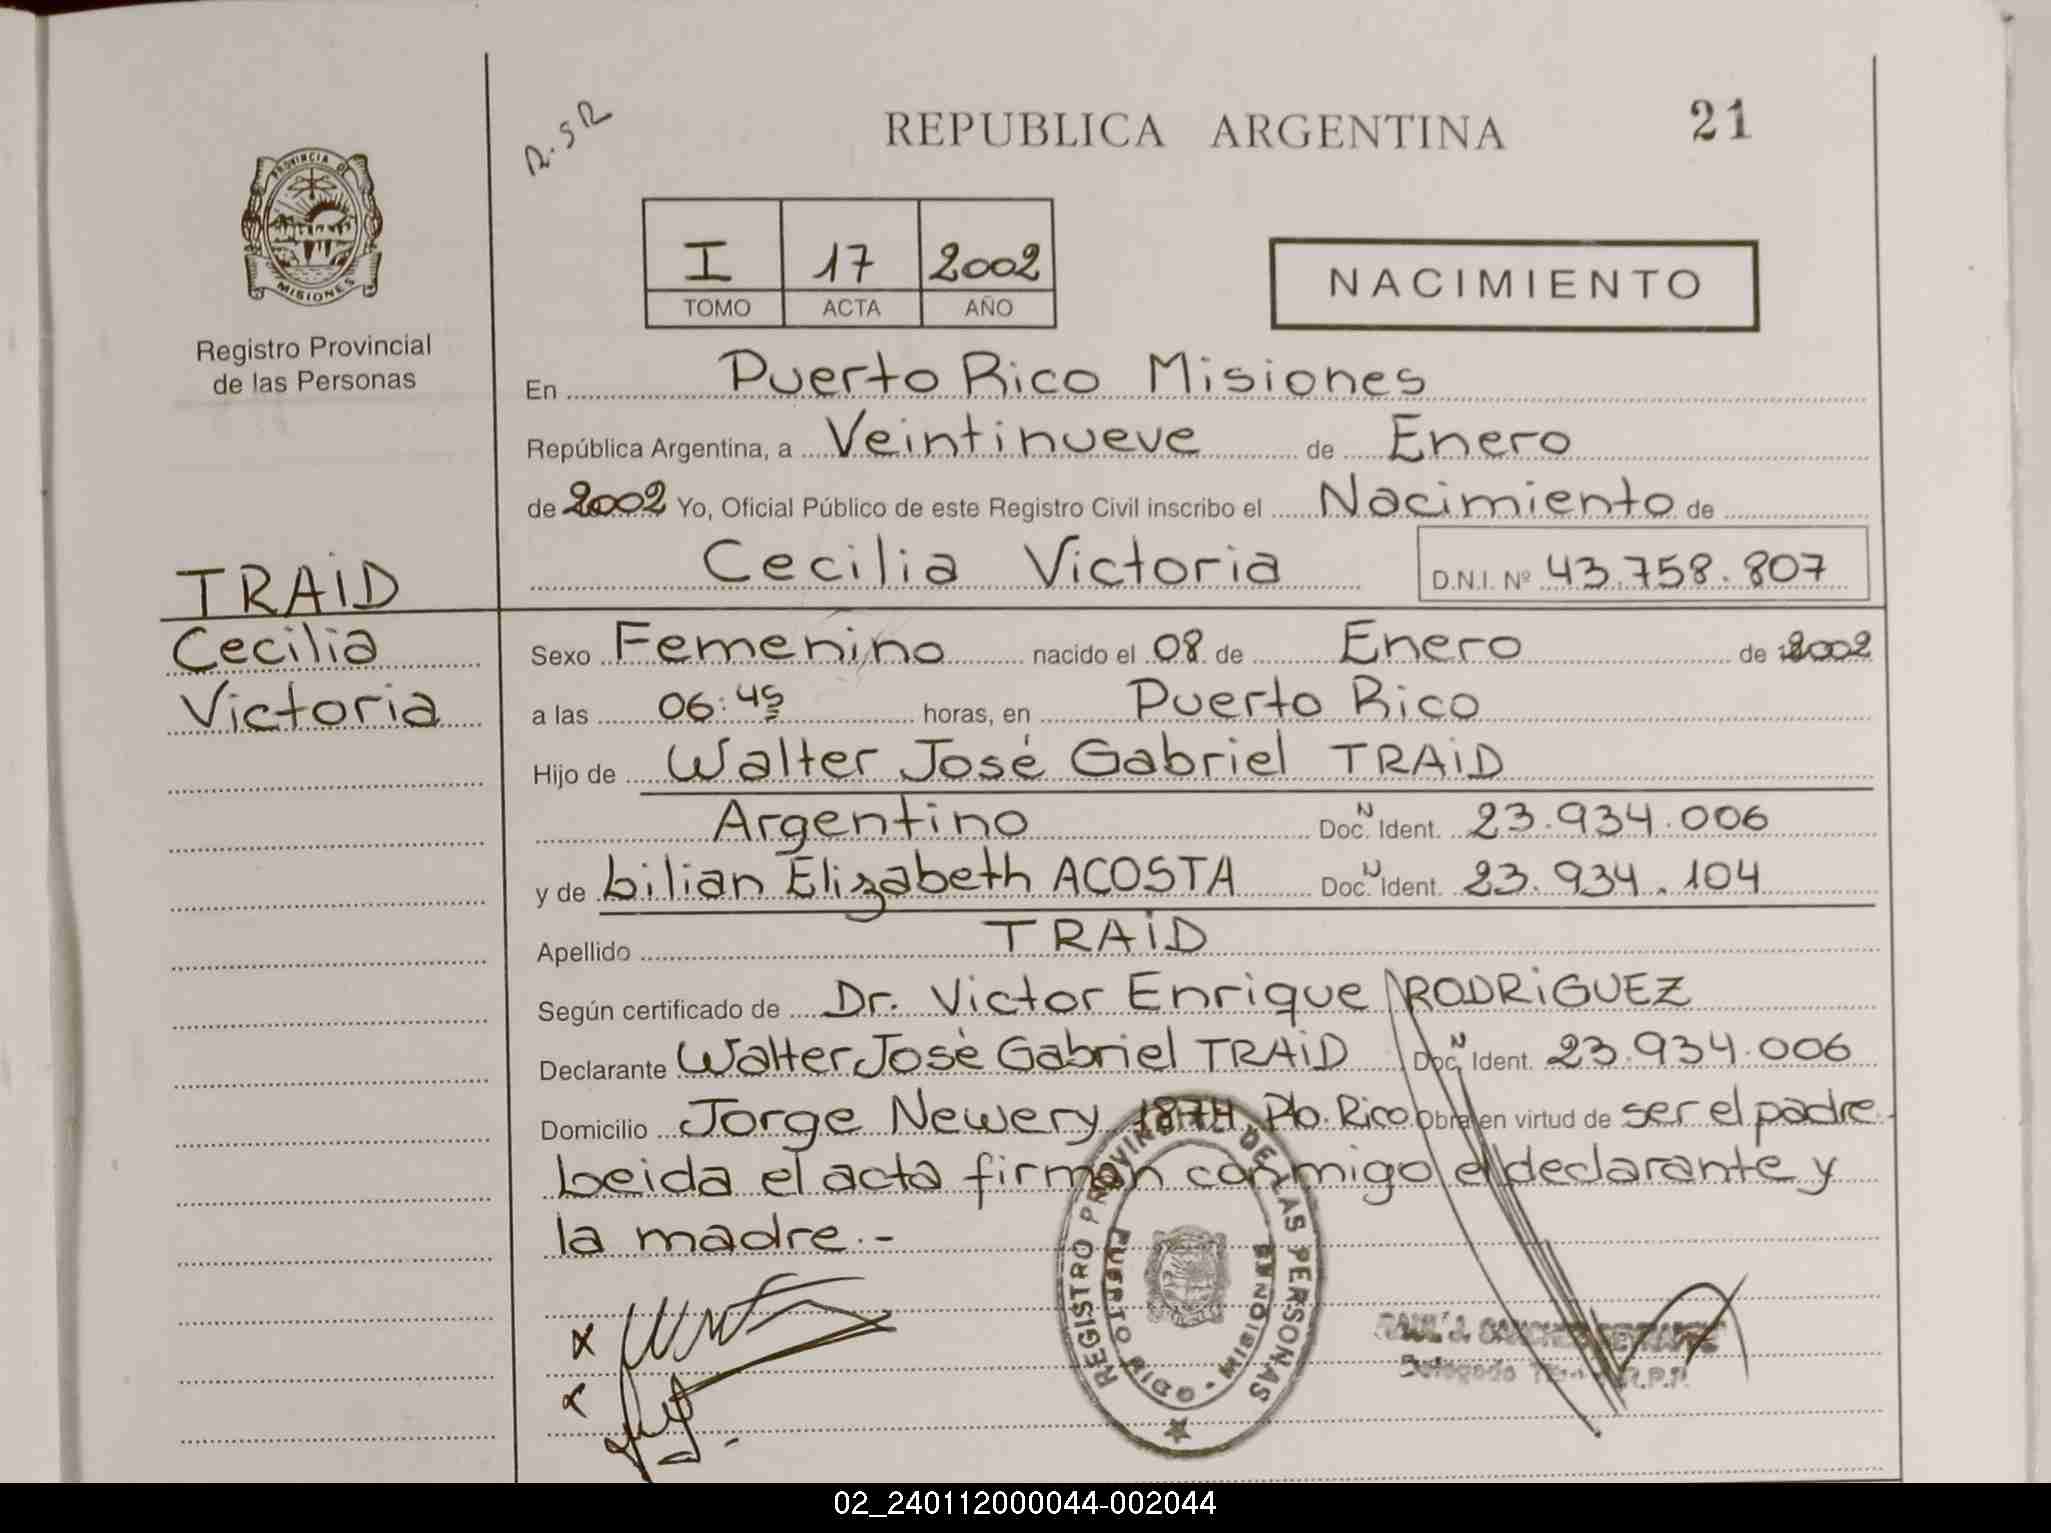 R.S.R
REPUBLICA ARGENTINA
21
PROVINCIA DE
MISIONES
Registro Provincial
de las Personas
I 17 2002
TOMO ACTA AÑO
NACIMIENTO
En Puerto Rico Misiones
República Argentina, a Veintinueve de Enero
de 2002 Yo, Oficial Público de este Registro Civil inscribo el Nacimiento de
Cecilia Victoria D.N.I. Nº 43.758.807
TRAID
Cecilia
Victoria
Sexo Femenino nacido el 08 de Enero de 2002
a las 06:45 horas, en Puerto Rico
Hijo de Walter José Gabriel TRAID
Argentino Doc. N Ident. 23.934.006
y de Lilian Elizabeth ACOSTA Doc. N Ident. 23.934.104
Apellido TRAID
Según certificado de Dr. Victor Enrique RODRIGUEZ
Declarante Walter José Gabriel TRAID Doc. N Ident. 23.934.006
Domicilio Jorge Newery 1874 Pto. Rico Obra en virtud de ser el padre.
Leida el acta firman conmigo el declarante y
la madre.-
REGISTRO PROVINCIAL DE LAS PERSONAS
PUERTO RICO - MISIONES
RAUL J.
Delegado R.P.P.
02_240112000044-002044